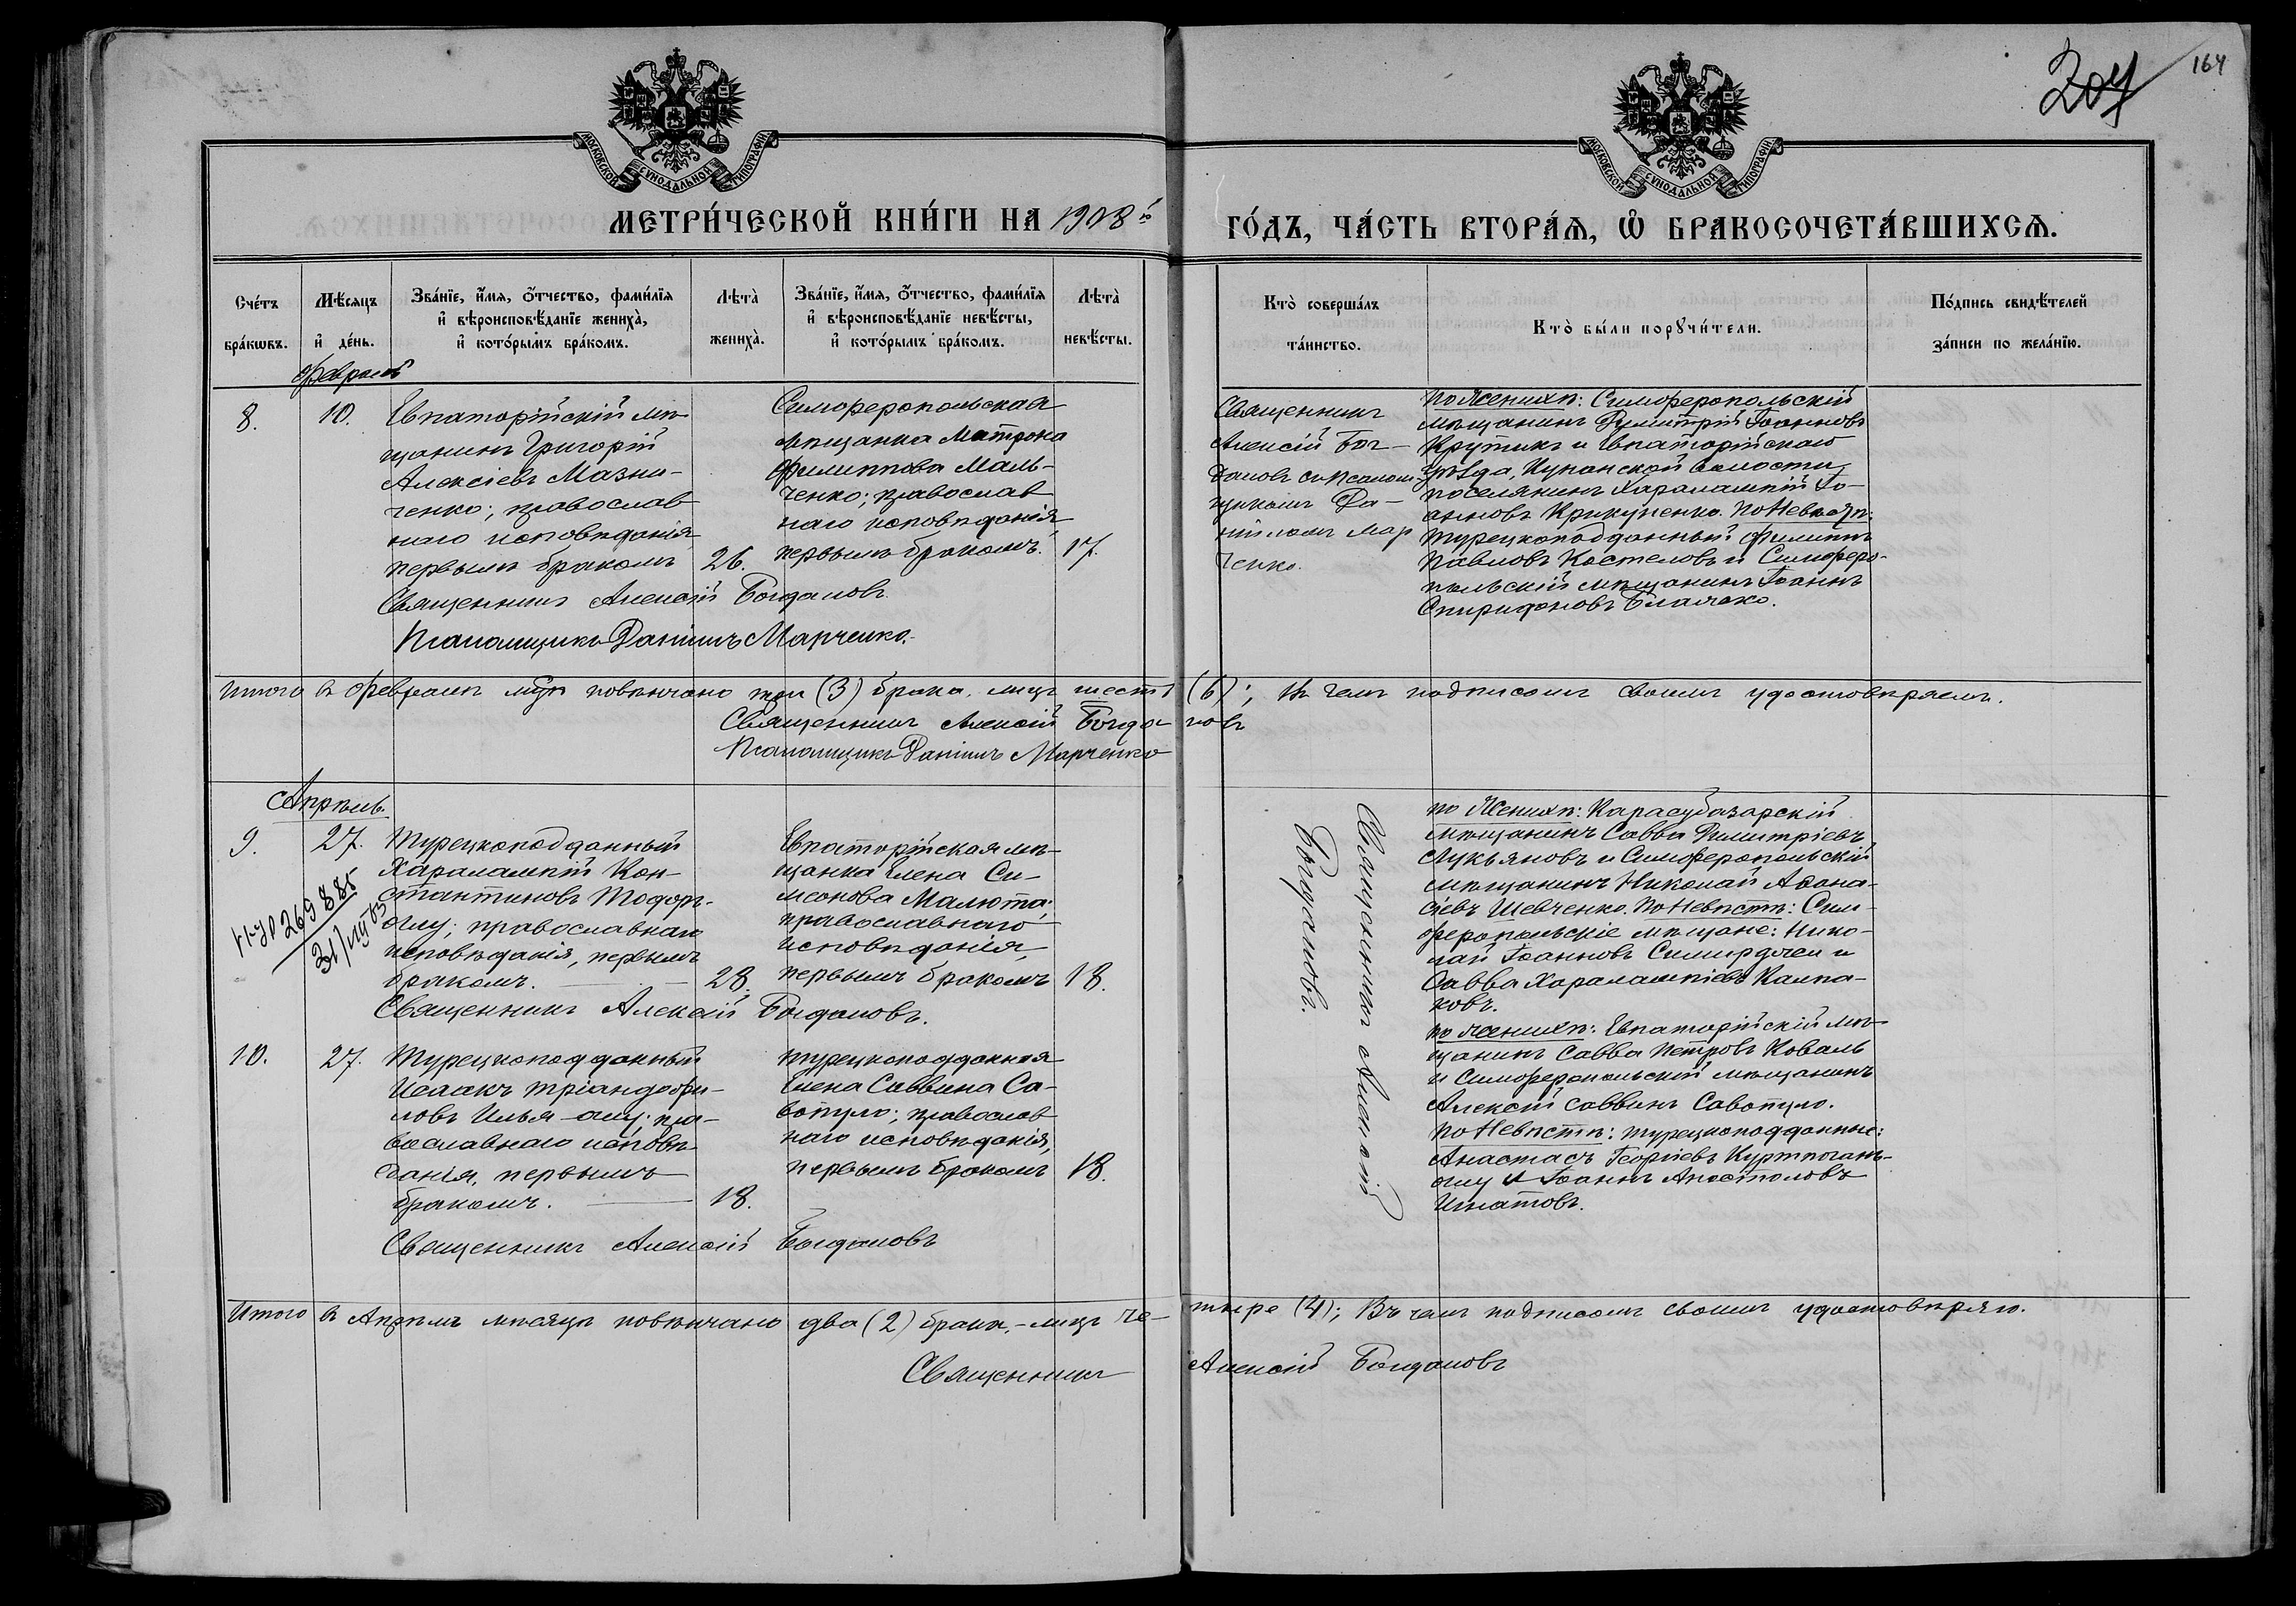 204
164
МОСКОВСКОЙ СѴНОДАЛЬНОЙ ТИПОГРАФІИ
МОСКОВСКОЙ СѴНОДАЛЬНОЙ ТИПОГРАФІИ
МЕТРИ́ЧЕСКОЙ КНИ́ГИ НА 1908й
ГО́ДЪ, ЧА́СТЬ ВТОРА́Ѧ, Ѡ҆ БРАКОСОЧЕТА́ВШИХСѦ.
Сче́тъ бра́кѡвъ.
Мѣ́сяцъ и҆ де́нь.
Зва́нїе, и҆́мя, ѻ҆́тчество, фами́лїя
и҆ вѣроисповѣ́данїе жениха̀,
и҆ кото́рымъ бра́комъ.
Лѣта̀ жениха̀.
Зва́нїе, и҆́мя, ѻ҆́тчество, фами́лїя
и҆ вѣроисповѣ́данїе невѣ́сты,
и҆ кото́рымъ бра́комъ.
Лѣта̀ невѣ́сты.
Кто̀ соверша́лъ
та́инство.
Кто̀ бы́ли порꙋчи́тели.
По́дпись свидѣ́телей
за́писи по жела́нїю.
Февраль
8.
10.
Евпаторійскій мѣ-
щанинъ Григорій
Алексіевъ Мазни-
ченко; православ
наго исповѣданія
первымъ бракомъ
26.
Симферопольская
мѣщанка Матрона
Филиппова Маль-
ченко; православ
наго исповѣданія,
первымъ бракомъ.
17.
Священникъ Алексій Богдановъ
Псаломщикъ Даніилъ Марченко.
Священникъ
Алексій Бог-
дановъ съ псалом-
щикомъ Да-
ніиломъ Мар
ченко.
По Женихѣ: Симферопольскій
мѣщанинъ Димитрій Іоанновъ
Крутикъ и Евпаторійскаго
уѣзда, Кунанской волости,
поселянинъ Харалампій Іо-
анновъ Крикуненко. По Невѣстѣ:
турецкоподданный Филиппъ
Павловъ Костеловъ и Симферо-
польскій мѣщанинъ Іоаннъ
Спиридоновъ
Итого въ Февралѣ м-цѣ повѣнчано три (3) брака, лицъ шесть (6); въ чемъ подписомъ своимъ удостовѣряемъ.
Священникъ Алексій Богдановъ
Псаломщикъ Даніилъ Марченко
Апрѣль.
9.
27.
269885
Турецкоподданный
Харалампій Кон-
стантиновъ Тодоръ-
оглу; православнаго
исповѣданія, первымъ
бракомъ.
28.
Евпаторійская мѣ-
щанка Елена Си-
меонова Малюта;
православнаго
исповѣданія,
первымъ бракомъ
18.
Священникъ Алексій Богдановъ.
Священникъ Алексій
Богдановъ.
по Женихѣ: Карасубазарскій
мѣщанинъ Савва Димитріевъ
Лукьяновъ и Симферопольскій
мѣщанинъ Николай Афана-
сіевъ Шевченко. По Невѣстѣ: Сим-
феропольскіе мѣщане: Нико-
лай Іоанновъ и
Савва Харалампіевъ Калпа-
ковъ.
10.
27.
Турецкоподданный
Исаакъ Тріандафи-
ловъ Илья-оглу; пра-
вославнаго исповѣ-
данія, первымъ
бракомъ.
18.
турецкоподданная
Елена Саввина Са-
вопуло; православ
наго исповѣданія,
первымъ бракомъ
18.
Священникъ Алексій Богдановъ
по Женихѣ: Евпаторійскій мѣ-
щанинъ Савва Петровъ Коваль
и Симферопольскій мѣщанинъ
Алексій Саввинъ Савопуло.
По Невѣстѣ: турецкоподданные:
Анастасъ Георгіевъ
оглу и Іоаннъ Апостоловъ
Игнатовъ.
Итого въ Апрѣлѣ мѣсяцѣ повѣнчано два (2) брака, - лицъ че-
тыре (4); Въ чемъ подписомъ своимъ удостовѣряю.
Священникъ Алексій Богдановъ